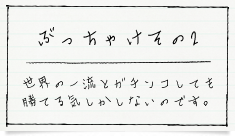 ぶっちゃけその2
世界の一流とガチンコしても
勝てる気しかしないのです。